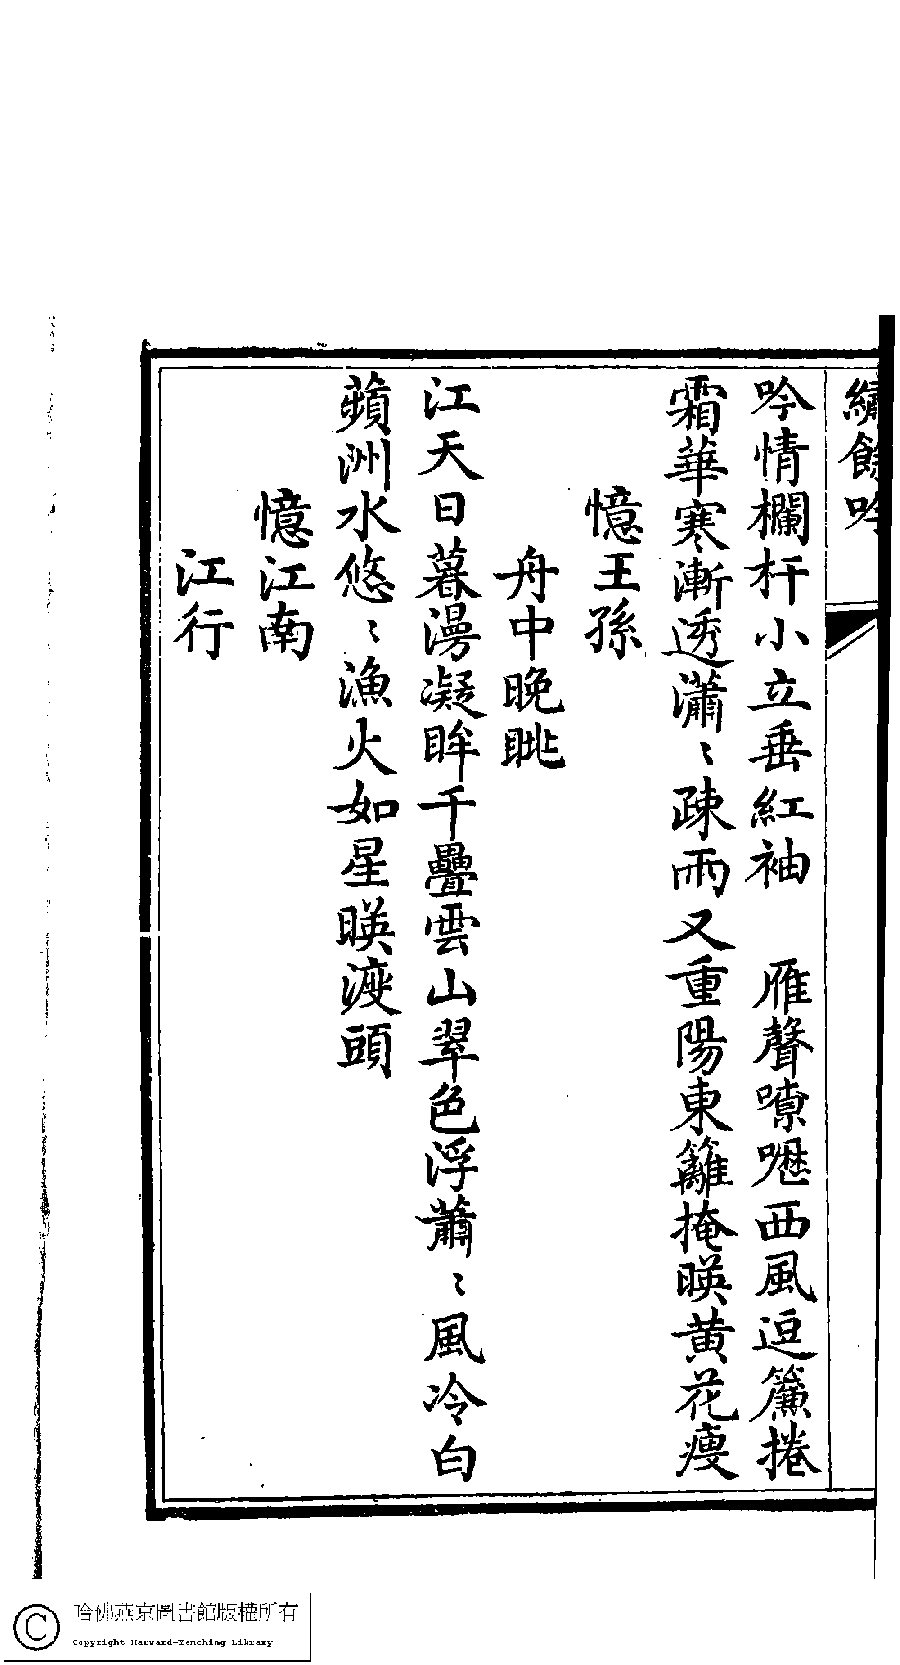 繡餘吟
吟情欄杆小立垂紅袖　雁聲嘹嚦西風逗簾捲
霜華寒漸透瀟〻疎雨又重陽東籬掩暎黄花瘦
憶王孫
舟中晚眺
江天日暮漫凝眸千疊雲山翠色浮蕭〻風冷白
蘋洲水悠〻漁火如星暎渡頭
憶江南
江行
哈佛燕京圖書館版權所有
Copyright Harvard-Yenching Library